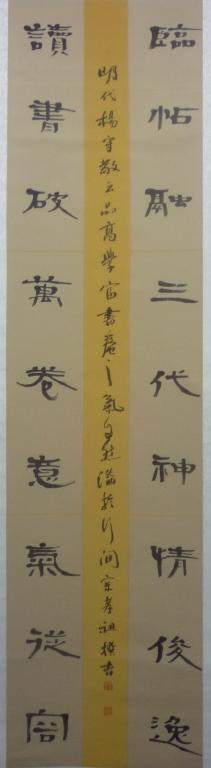 臨帖融三代神情俊逸
明代楊守敬云品高學富書卷之氣自然溢於行間宗孝祖撰書
讀書破萬卷意氣從容